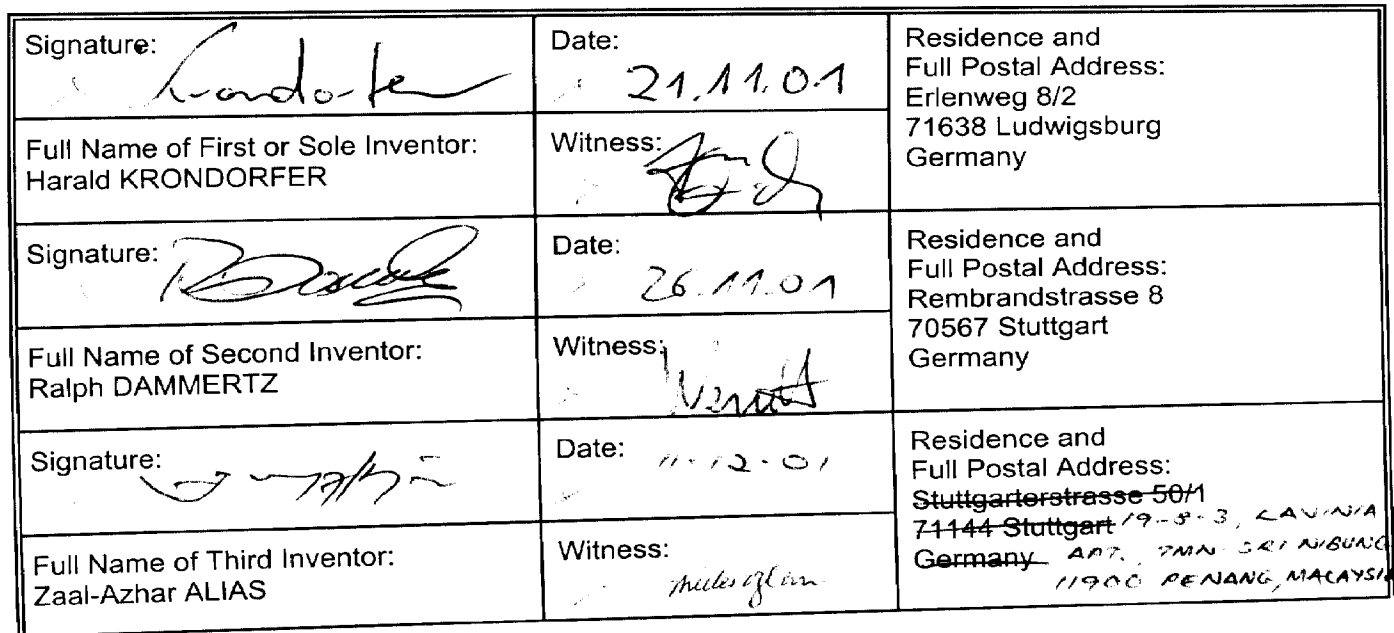 Signature:
Krondorfer
Date:
21.11.01
Residence and
Full Postal Address:
Erlenweg 8/2
71638 Ludwigsburg
Germany
Full Name of First or Sole Inventor:
Harald KRONDORFER
Witness:
Signature:
Date:
26.11.01
Residence and
Full Postal Address:
Rembrandstrasse 8
70567 Stuttgart
Germany
Full Name of Second Inventor:
Ralph DAMMERTZ
Witness:
Signature:
Date: 11-12-01
Residence and
Full Postal Address:
Stuttgarterstrasse 50/1
71144 Stuttgart 19-8-3, LAVINIA
Germany APT. TMN SRI NIBUNG
11900 PENANG, MALAYSIA
Full Name of Third Inventor:
Zaal-Azhar ALIAS
Witness: